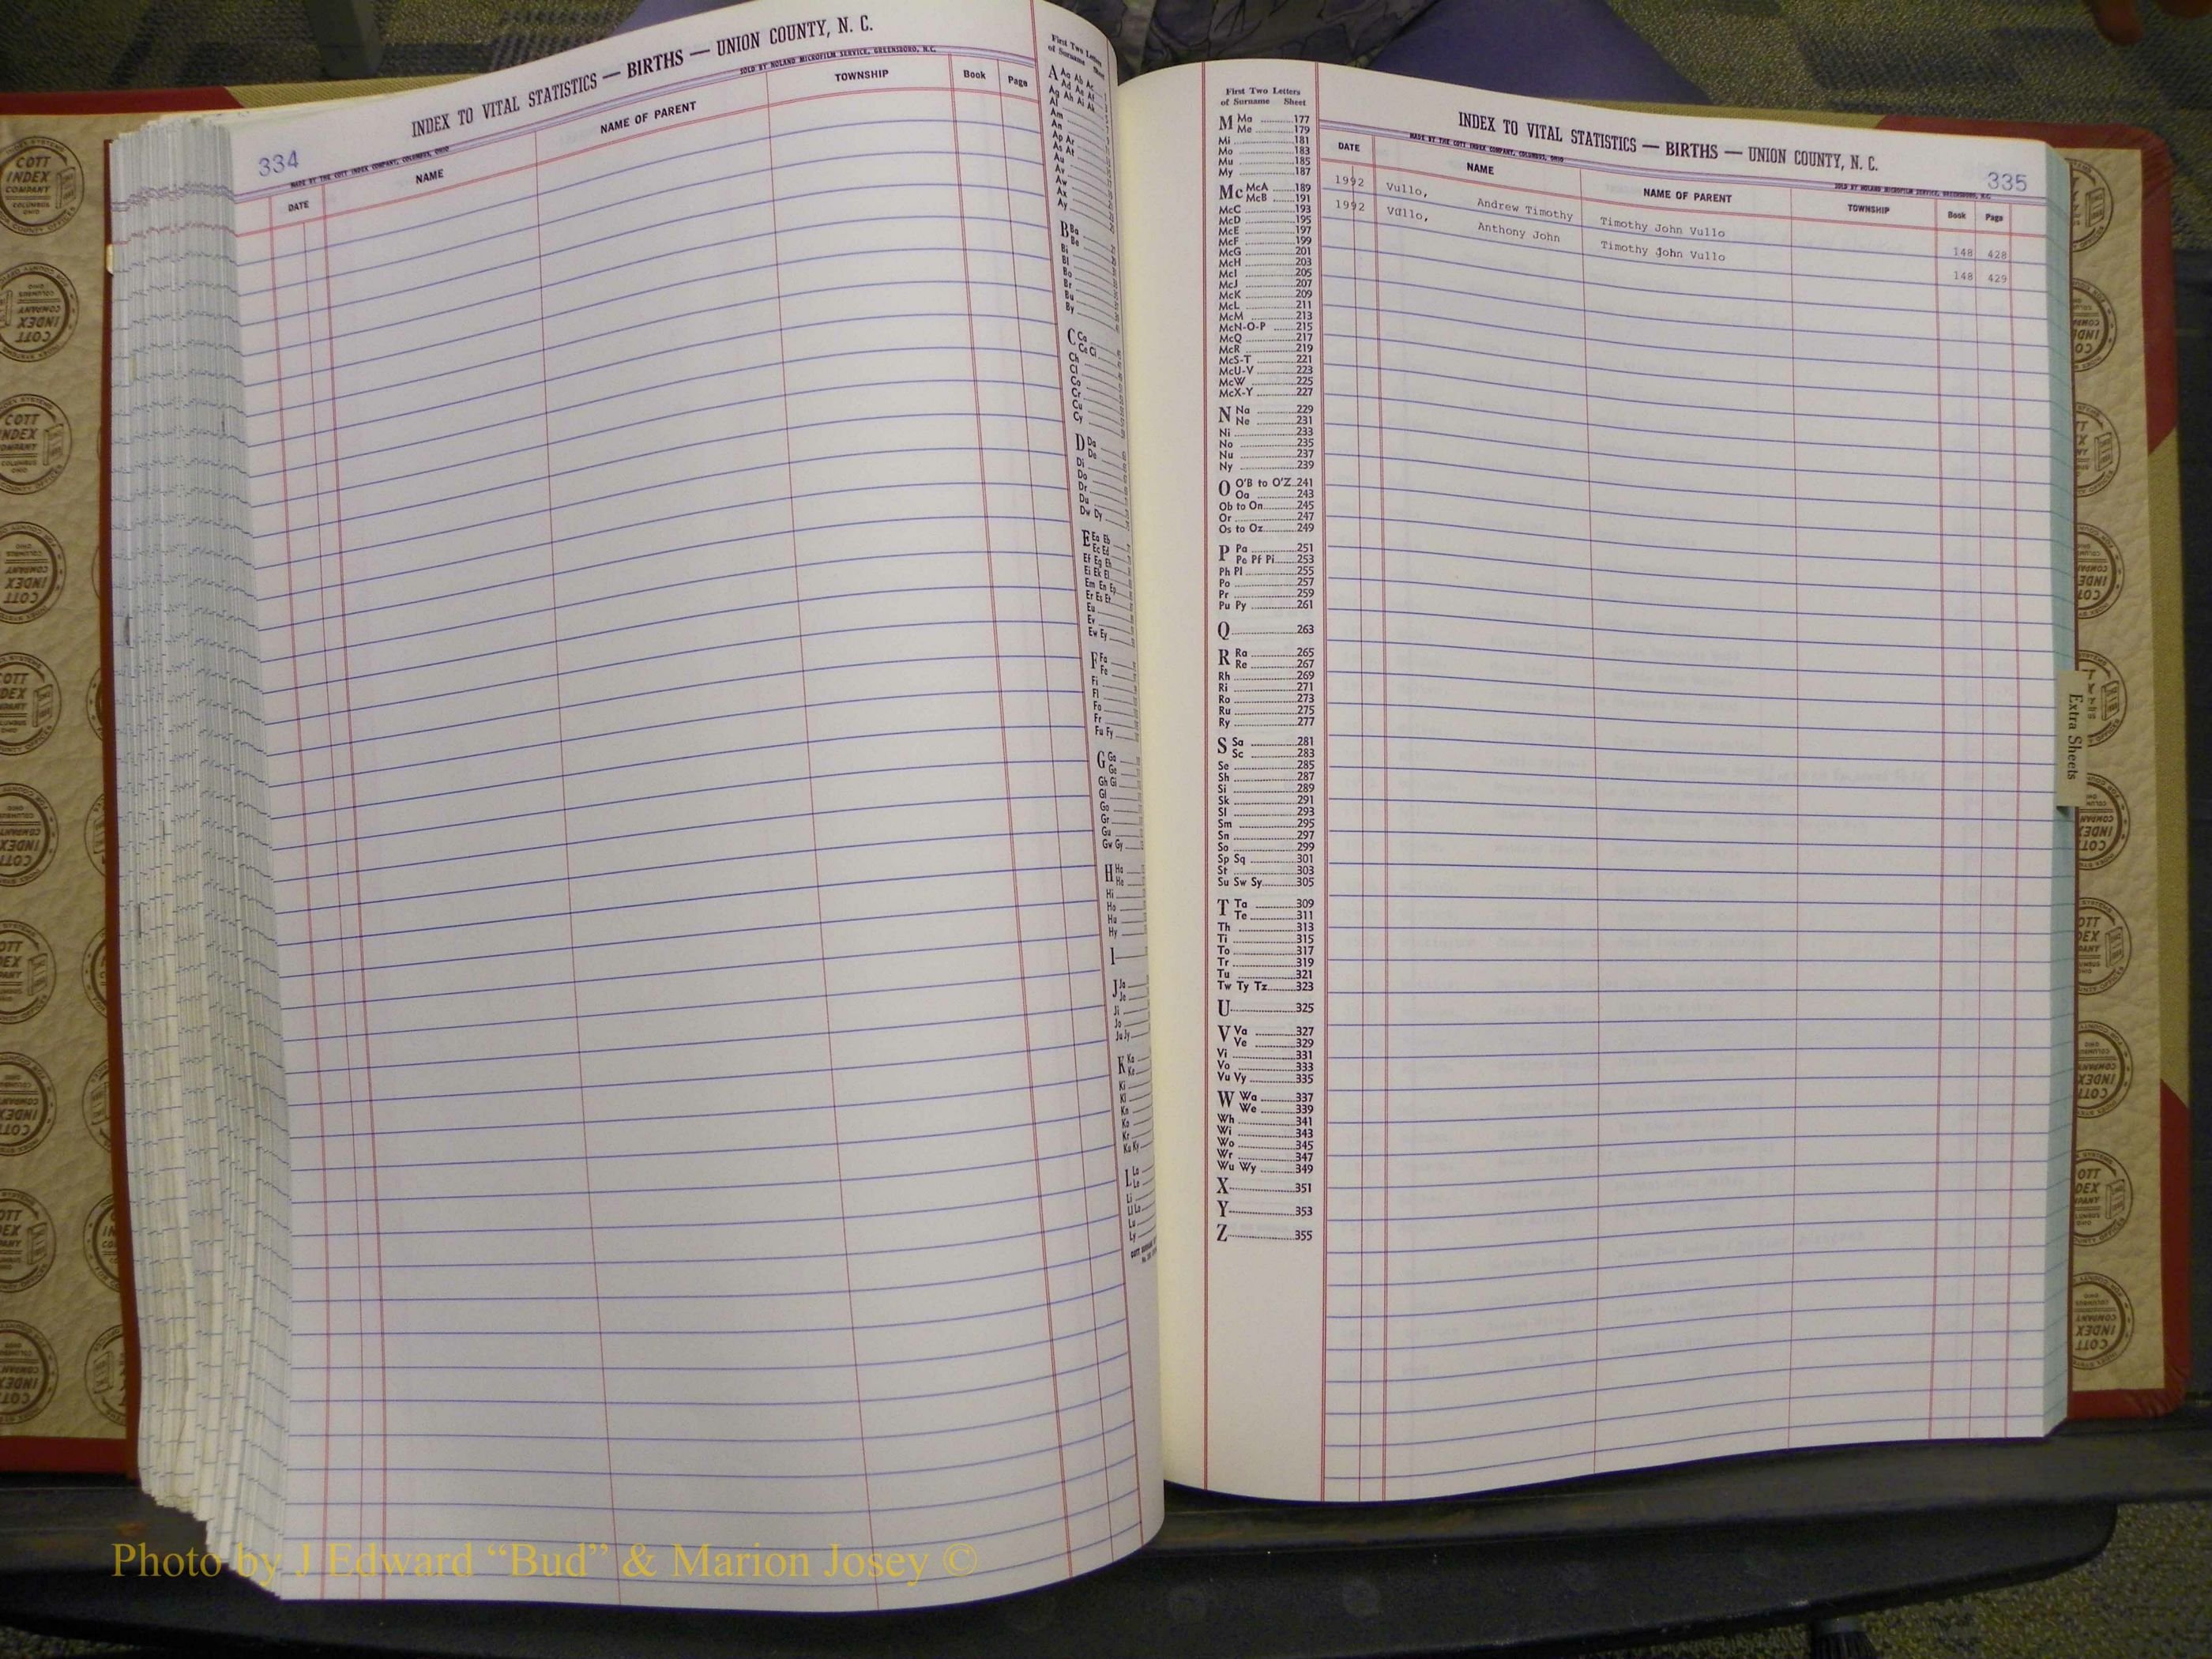 334
INDEX TO VITAL STATISTICS — BIRTHS — UNION COUNTY, N. C.
MADE BY THE COTT INDEX COMPANY, COLUMBUS, OHIO
SOLD BY NOLAND MICROFILM SERVICE, GREENSBORO, N.C.
DATE NAME NAME OF PARENT TOWNSHIP Book Page
First Two Letters
of Surname Sheet
A Aa Ab Ac
Ad Ae Af
Ag Ah Ai Ak
Al
Am
An
Ap Ar
As At
Au
Av
Aw
Ax
Ay
B Ba
Be
Bi
Bl
Bo
Br
Bu
By
C Ca
Ce Ci
Ch
Cl
Co
Cr
Cu
Cy
D Da
De
Di
Do
Dr
Du
Dw Dy
E Ea Eb
Ec Ed
Ef Eg Eh
Ei Ek El
Em En Ep
Er Es Et
Eu
Ev
Ew Ey
F Fa
Fe
Fi
Fl
Fo
Fr
Fu Fy
G Ga
Ge
Gh Gi
Gl
Go
Gr
Gu
Gw Gy
H Ha
He
Hi
Ho
Hu
Hy
I
J Ja
Je
Ji
Jo
Ju Jy
K Ka
Ke
Ki
Kl
Kn
Ko
Kr
Ku Ky
L La
Le
Li
Ll Lo
Lu
Ly
First Two Letters
of Surname Sheet
M Ma 177
Me 179
Mi 181
Mo 183
Mu 185
My 187
Mc McA 189
McB 191
McC 193
McD 195
McE 197
McF 199
McG 201
McH 203
McI 205
McJ 207
McK 209
McL 211
McM 213
McN-O-P 215
McQ 217
McR 219
McS-T 221
McU-V 223
McW 225
McX-Y 227
N Na 229
Ne 231
Ni 233
No 235
Nu 237
Ny 239
O O'B to O'Z 241
Oa 243
Ob to On 245
Or 247
Os to Oz 249
P Pa 251
Pe Pf Pi 253
Ph Pl 255
Po 257
Pr 259
Pu Py 261
Q 263
R Ra 265
Re 267
Rh 269
Ri 271
Ro 273
Ru 275
Ry 277
S Sa 281
Sc 283
Se 285
Sh 287
Si 289
Sk 291
Sl 293
Sm 295
Sn 297
So 299
Sp Sq 301
St 303
Su Sw Sy 305
T Ta 309
Te 311
Th 313
Ti 315
To 317
Tr 319
Tu 321
Tw Ty Tz 323
U 325
V Va 327
Ve 329
Vi 331
Vo 333
Vu Vy 335
W Wa 337
We 339
Wh 341
Wi 343
Wo 345
Wr 347
Wu Wy 349
X 351
Y 353
Z 355
INDEX TO VITAL STATISTICS — BIRTHS — UNION COUNTY, N. C.
MADE BY THE COTT INDEX COMPANY, COLUMBUS, OHIO
SOLD BY NOLAND MICROFILM SERVICE, GREENSBORO, N.C.
335
DATE NAME NAME OF PARENT TOWNSHIP Book Page
1992 Vullo, Andrew Timothy Timothy John Vullo 148 428
1992 Vullo, Anthony John Timothy John Vullo 148 429
Extra Sheets
COTT
INDEX
COMPANY
COLUMBUS
OHIO
Photo by J Edward “Bud” & Marion Josey ©